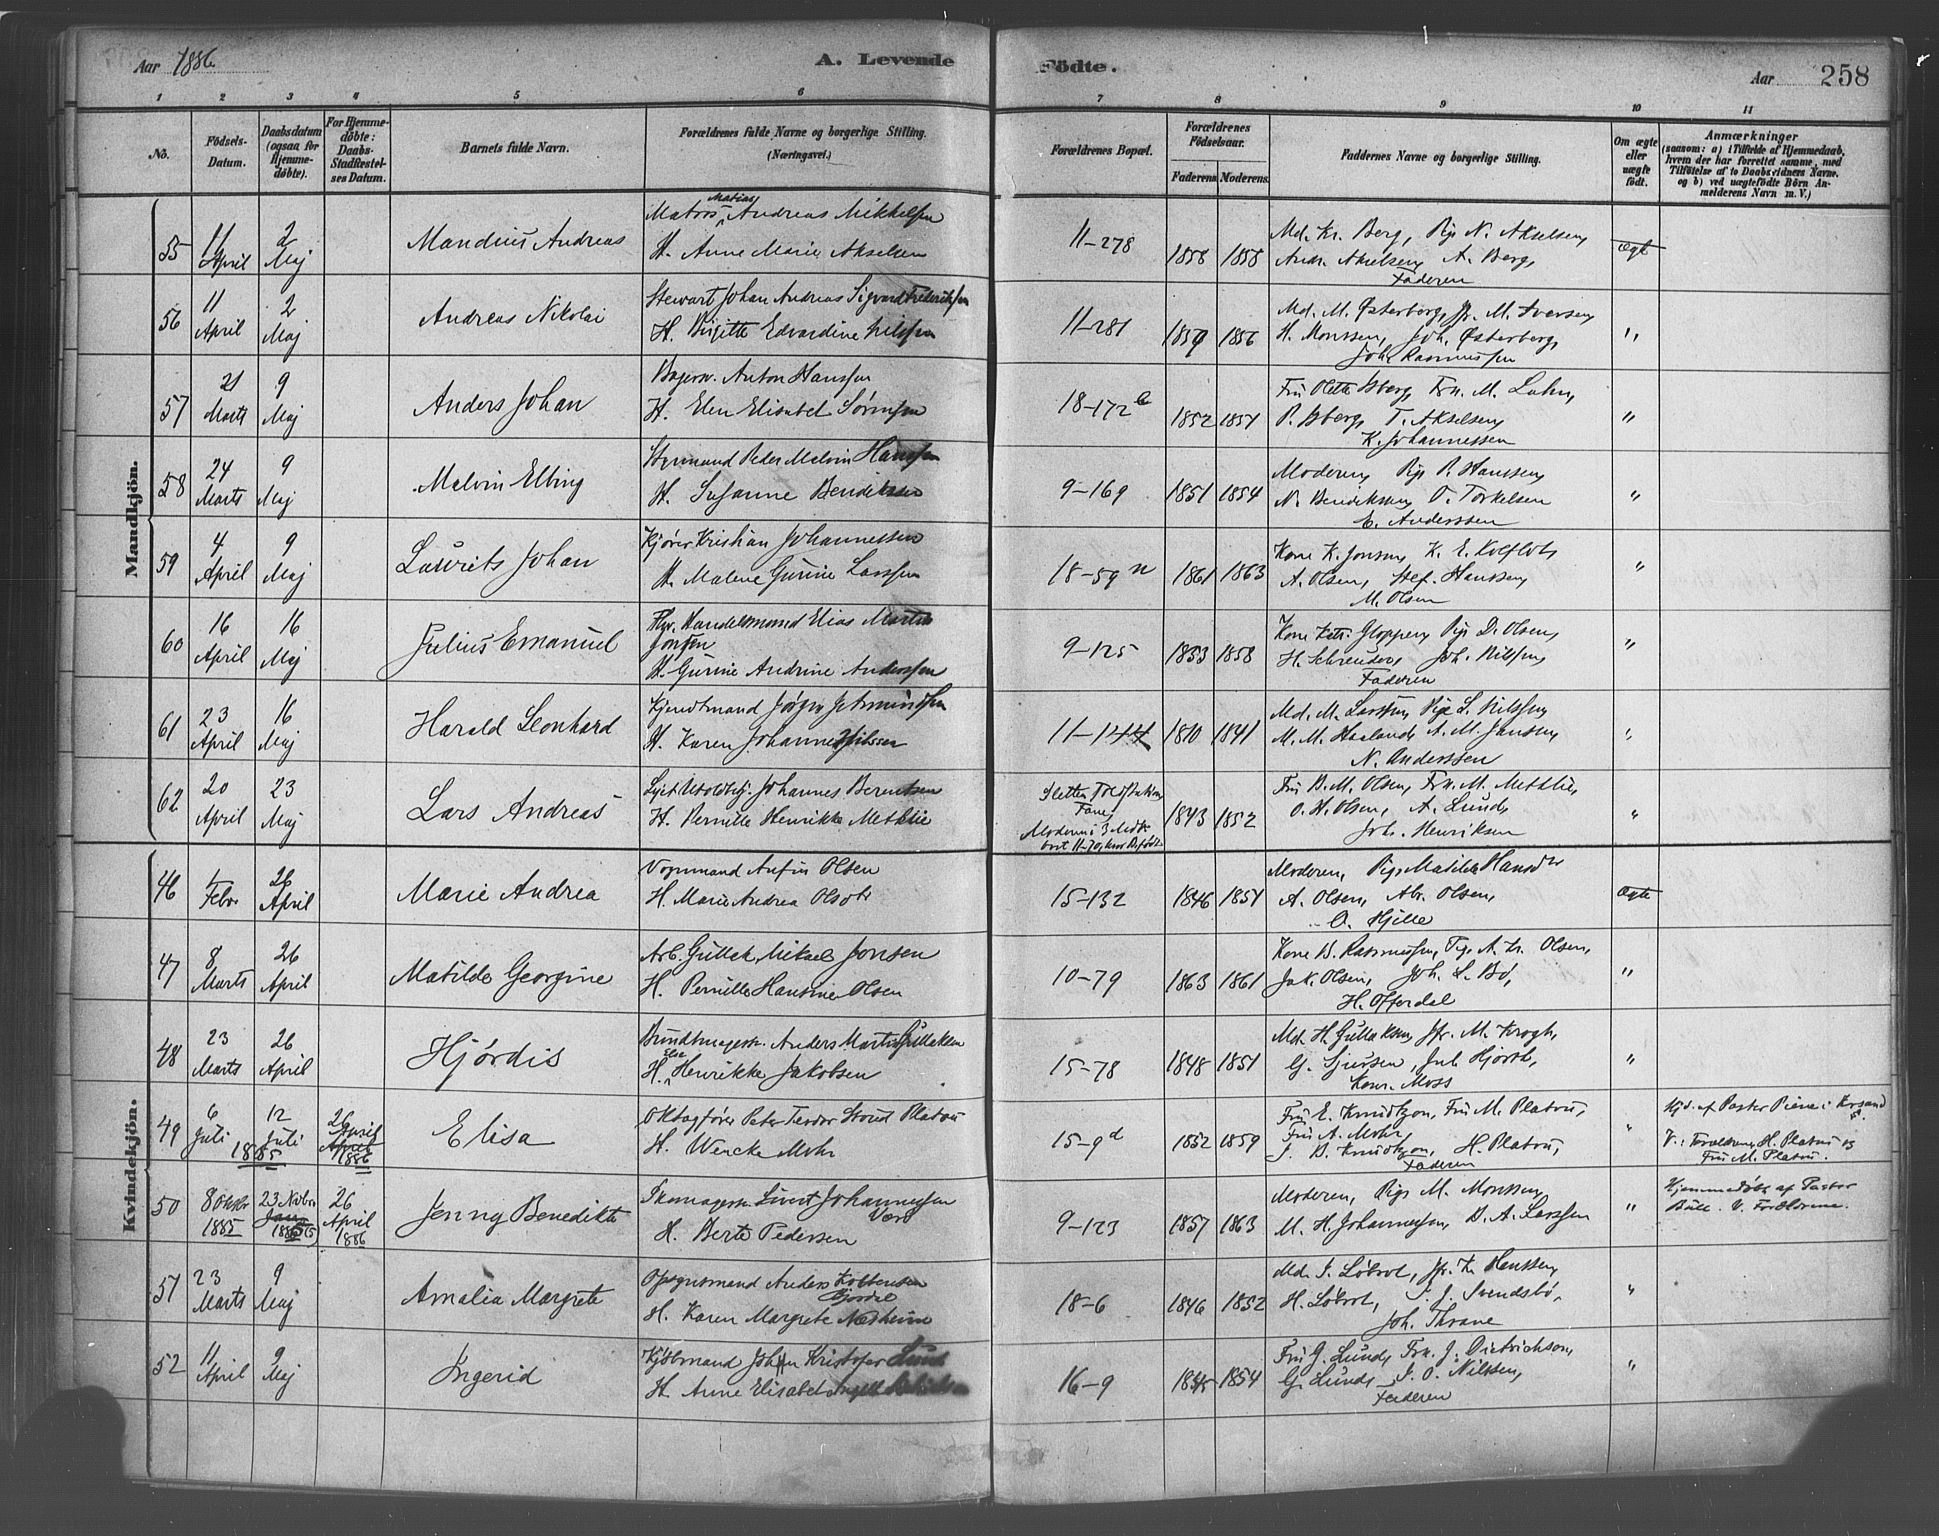 Aar 1886
A. Levende Födte.
Aar 258
1 2 3 4 5 6 7 8 9 10 11
No.
Födsels-Datum.
Daabsdatum (ogsaa for Hjemme-döbte).
For Hjemme-döbte: Daabs-Stadfæstel-ses Datum.
Barnets fulde Navn.
Forældrenes fulde Navne og borgerlige Stilling. (Næringsvei.)
Forældrenes Bopæl.
Forældrenes Födselsaar.
Faderens Moderens
Faddernes Navne og borgerlige Stilling.
Om ægte eller uægte födt.
Anmærkninger
(saasom: a) i Tilfælde af Hjemmedaab,
hvem der har forrettet samme, med
Tilföielse af to Daabsvidners Navne.
og b) ved uægtefödte Börn An-
melderens Navn m. V.)
Mandkjön.
55 11 April 2 Maj Mandius Andreas
Matros Matias Andreas Mikkelsen
H. Anne Marie Akselsen
11-278 1858 1858
Md. Kr. Berg, Pige N. Akselsen,
Andr. Akselsen, A. Berg,
Faderen
Ægte
56 11 April 2 Maj Andreas Nikolai
Stewart Johan Andreas Sigvard Frederiksen
H. Birgitte Edvardine Nilssen
11-281 1859 1856
Md. M. Østerberg, Jfr. M. Iversen,
H. Monssen, Joh. Østerberg,
Joh. Rasmussen
"
57 21 Marts 9 Maj Anders Johan
Bagersv. Anton Hanssen
H. Elen Elisabet Sørensen
18-172 b 1852 1851
Fru Olette Isberg, Frk. M. Lahn,
P. Isberg, T. Akselsen,
K. Johannessen
"
58 24 Marts 9 Maj Malvin Elbing
Styrmand Peder Malvin Hanssen
H. Susanne Bendiksen
9-169 1851 1854
Moderen, Pige P. Hanssen,
N. Bendiksen, O. Torkelsen
E. Anderssen
"
59 4 April 9 Maj Laurits Johan
Kjører Kristian Johannessen
H. Malene Gurine Larssen
18-59 n 1861 1863
Kone K. Jonsen, K. E. Kolflot,
A. Olsen, Stef. Hanssen,
M. Olsen
"
60 16 April 16 Maj Julius Emanuel
Handelsmand Elias Martin
Jonsen
H. Gurine Andrine Anderssen
9-125 1853 1858
Kone Katr. Gloppen, Pige D. Olsen,
H. Schreuder, Joh. Nilssen,
Faderen
"
61 23 April 16 Maj Harald Leonhard
H. Karen Johanne Nilssen
11-144 1810 1841
Md. M. Larssen, Pige L. Nilssen,
M. M. Haaland, A. M. Janssen,
N. Anderssen
"
62 20 April 23 Maj Lars Andreas
Johannes Berentsen
H. Pernille Henrikke Methlie
Fane,
1843 1852
Fru B. M. Olsen, Frk. M. Methlie,
O. H. Olsen, A. Lund,
Joh. Henriksen
"
Kvindekjön.
46 1 Febr 26 April Marie Andrea
Vognmand Anfin Olsen
H. Marie Andrea Olsdtr
15-132 1846 1851
Moderen, Pige Matilde Hansdtr
A. Olsen, Abr. Olsen,
O. Hjelle
Ægte
47 8 Marts 26 April Matilde Georgine
Arb. Gullak Mikael Jonsen
H. Pernille Hansine Olsen
10-79 1863 1861
Kone B. Rasmussen, Pige A. Kr. Olsen,
Jak. Olsen, Joh. L. Bø,
H. Offerdal
"
48 23 Marts 26 April Hjørdis
Buntmagersv. Anders Martin Gullaksen
H. Henrikke Jakobsen
15-78 1848 1851
Md. H. Gullaksen, Jfr. M. Krogh,
G. Sjursen, Jul. Hjorth,
Konr. Moss
"
49 6 Juli 12 Juli 1885 26 April 1886 Elisa
Oktagfører Peter Teodor Stoud Platou
H. Wencke Mohr
15-9 d 1852 1859
Fru E. Knudtzon, Fru M. Platou,
Fru A. Mohr,
J. B. Knudtzon, H. Platou,
Faderen
"
V.: Forældrene, H. Platou og
Fru M. Platou.
50 8 Oktbr 1885 23 Novbr 26 April 1886 Jenny Benedikte
Skomagersv. Sivert Johannessen
H. Berte Pedersen
9-123 1857 1863
Moderen, Pige M. Monssen,
M. H. Johannessen, B. A. Larssen
"
Hjemmedøbt af Pastor
Bull. V. Forældrene.
51 23 Marts 9 Maj Amalia Margrete
Opsynsmand Anders Kolbensen
Gjordal
H. Karen Margrete Næsheim
18-6 1846 1852
Md. I. Løbrot, Jfr. K. Hanssen,
H. Løbrot, I. J. Svendsbø,
Joh. Thrane
"
52 11 April 9 Maj Ingerid
Kjøbmand Johan Kristofer Lund
H. Anne Elisabet
16-9 1845 1854
Fru G. Lund, Frk. J. Dietrichson,
G. Lund, J. O. Nilssen,
Faderen
"